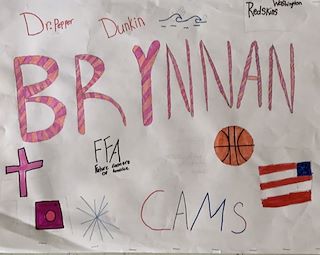 Dr. Pepper
Dunkin
Washington
Redskins
BRYNNAN
FFA
Future Farmers
of America
CAMS